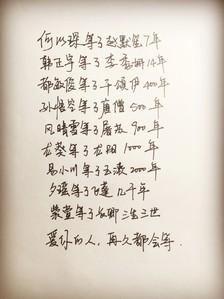 何以琛等了赵默笙7年
韩正宇等了李秀姗14年
都敏俊等了千颂伊400年
孙悟空等了唐僧500年
风晴雪等了屠苏900年
龙葵等了龙阳1000年
易小川等了玉漱2000年
夕瑶等了飞蓬几千年
紫萱等了长卿三生三世
爱你的人，再久都会等.